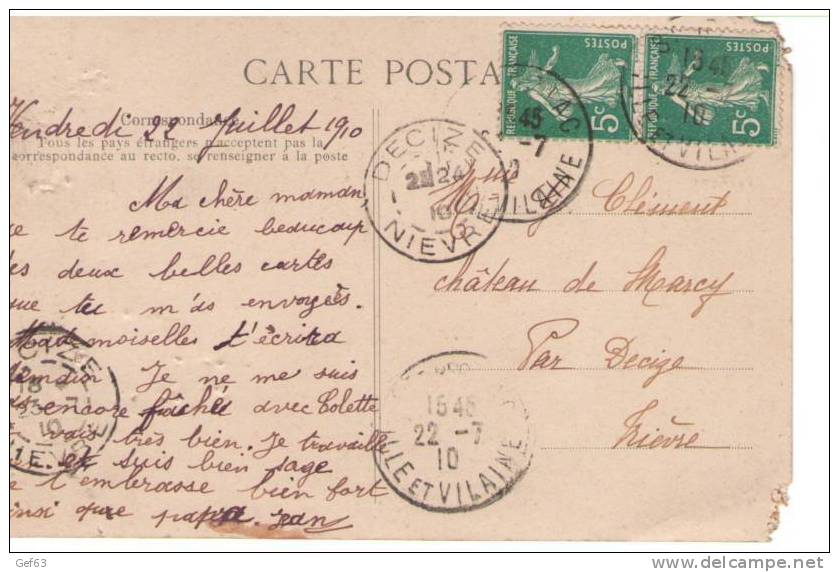 CARTE POSTA
Correspondance
Vendredi 22 Juillet 1910
Tous les pays étrangers n'acceptent pas la
correspondance au recto, se renseigner à la poste
Ma chère maman,
te remercie beaucoup
des deux belles cartes
que tu m'as envoyées.
Mad moiselles t'écrira
demain Je ne me suis
pas encore fâché avec Colette
vais très bien. Je travaille
et suis bien sage
t'embrasse bien fort
ainsi que papa. Jean
POSTES
RÉPUBLIQUE FRANÇAISE
5c
POSTES
RÉPUBLIQUE FRANÇAISE
5c
DECIZE
24
10
NIEVRE
45
-7
VILAINE
1545
22 -7
10
ET VILAINE
Clément
château de Marcy
Par Decize
Nièvre
1545
22 -7
10
ILLE ET VILAINE
CIZE
18
25 -7
10
Gef63
delcampe.net